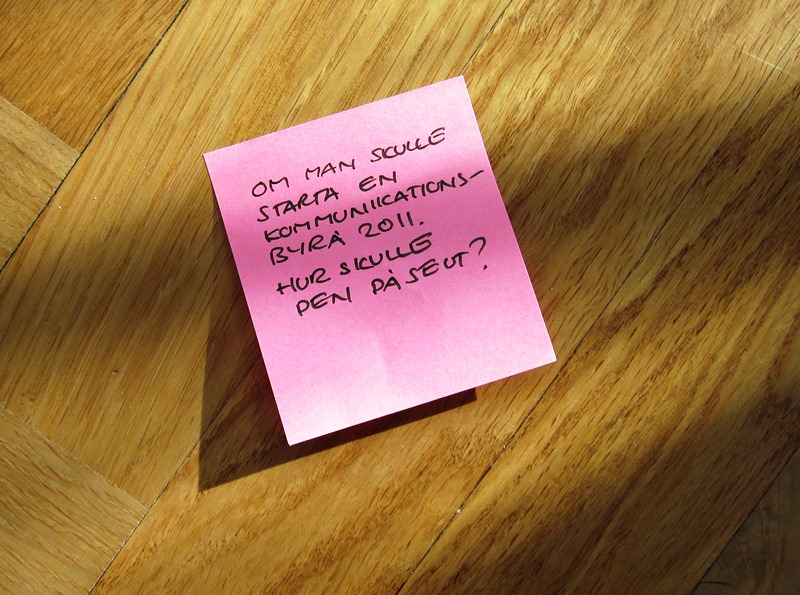 OM MAN SKULLE
STARTA EN
KOMMUNIKATIONS-
BYRÅ 2011.
HUR SKULLE
DEN DÅ SE UT?